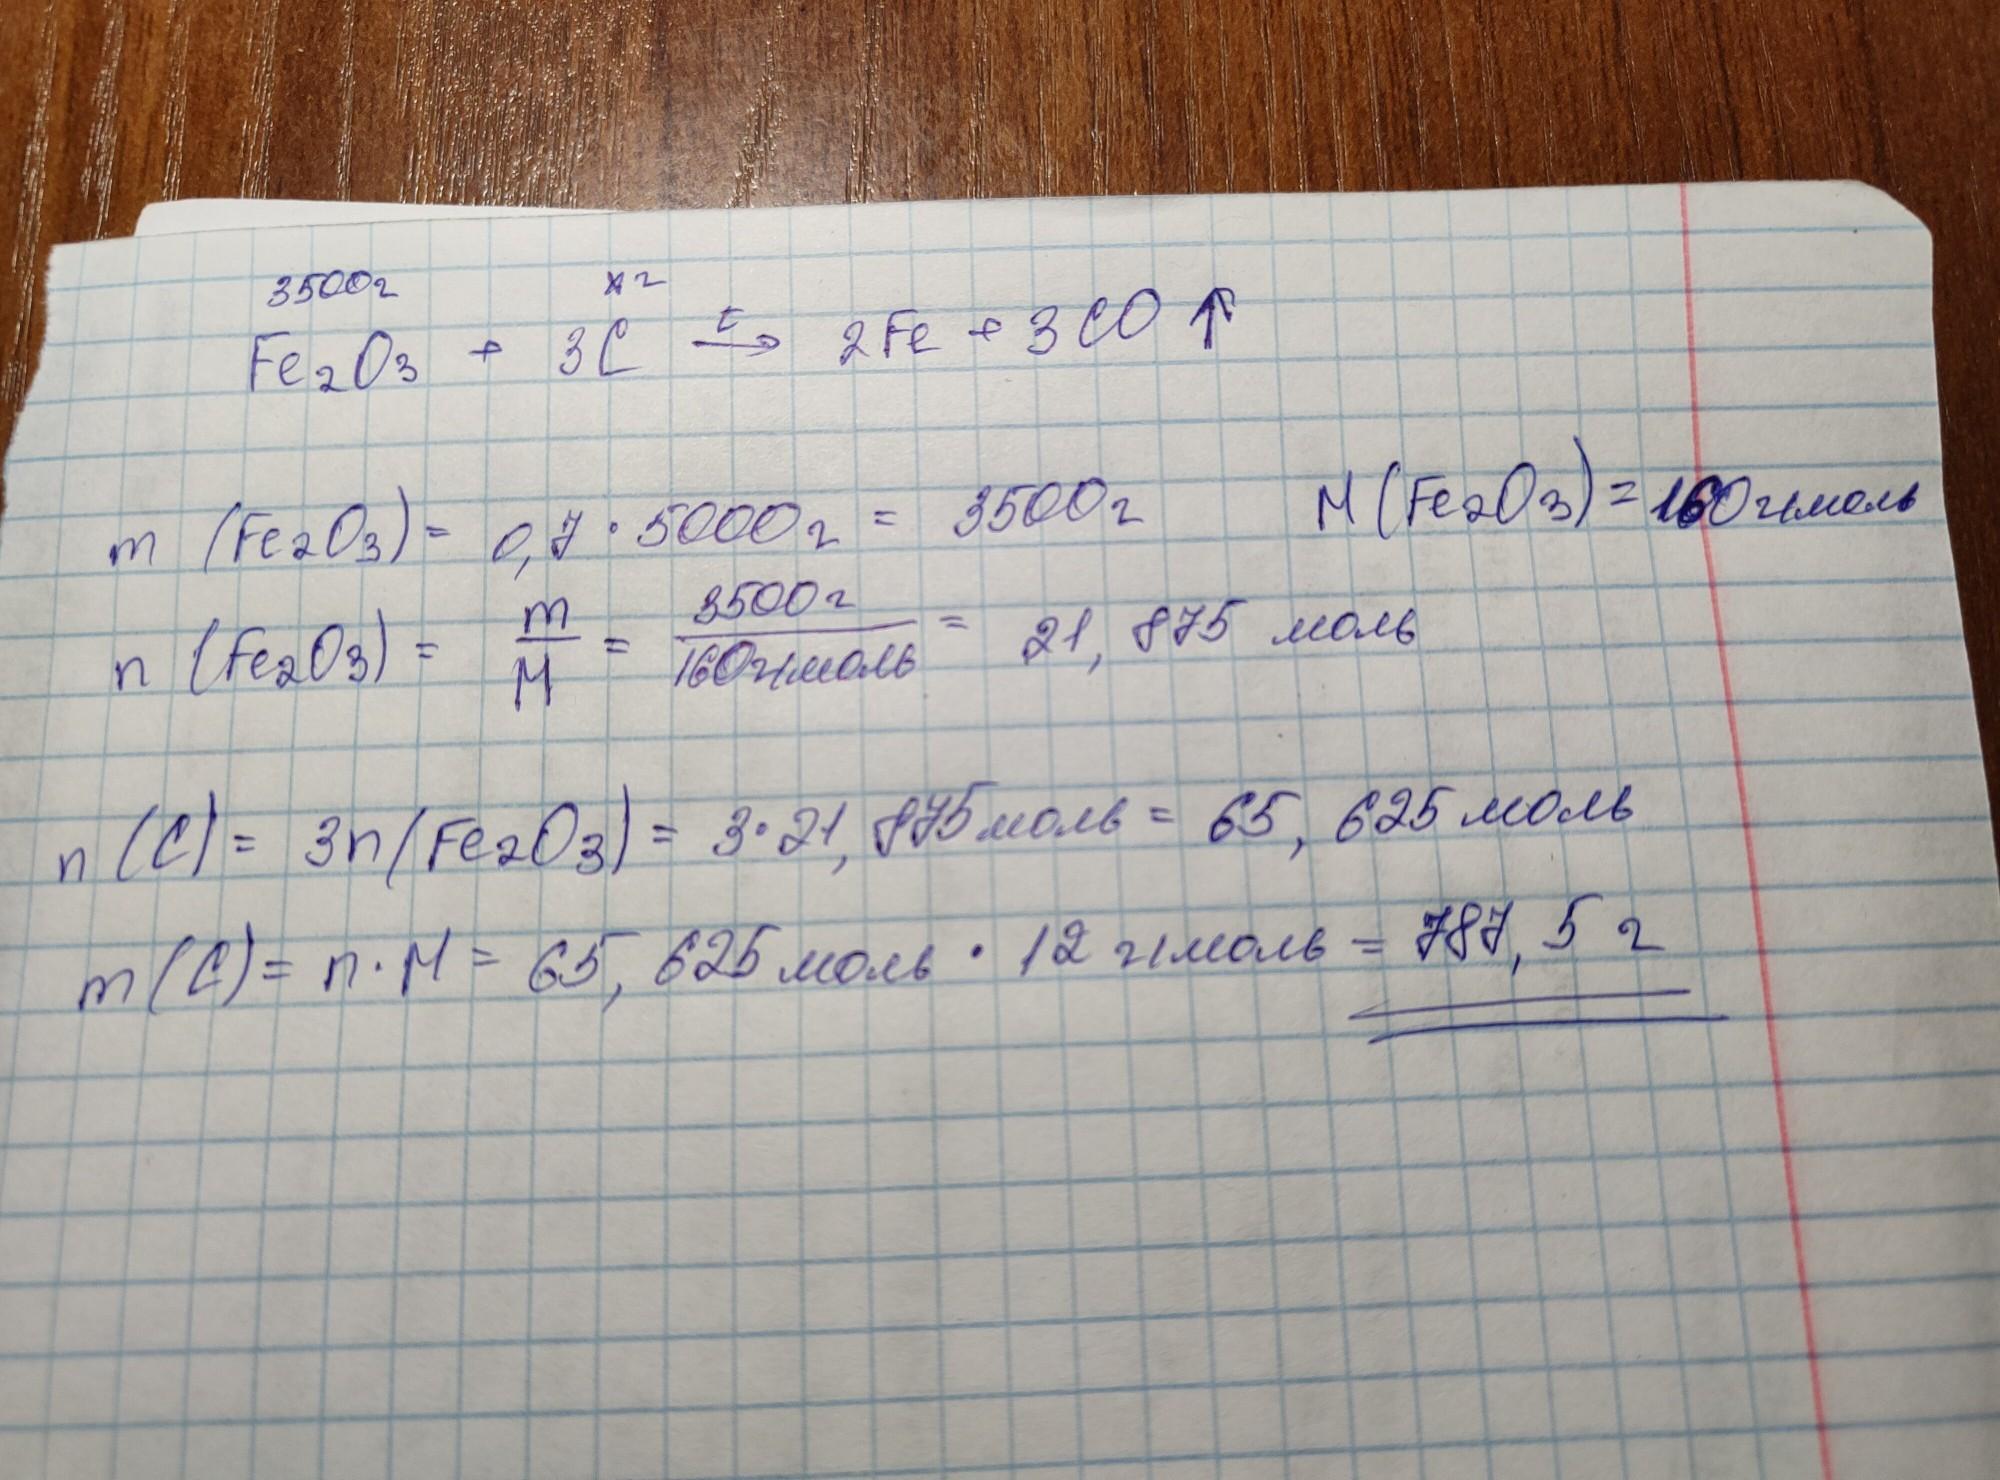 3500г xг
Fe₂O₃ + 3C →ᵗ 2Fe + 3CO ↑
m (Fe₂O₃) = 0,7 · 5000г = 3500г M (Fe₂O₃) = 160 г/моль
n (Fe₂O₃) = m/M = 3500г/160г/моль = 21,875 моль
n (C) = 3n (Fe₂O₃) = 3·21,875 моль = 65,625 моль
m (C) = n·M = 65,625 моль · 12 г/моль = 787,5 г